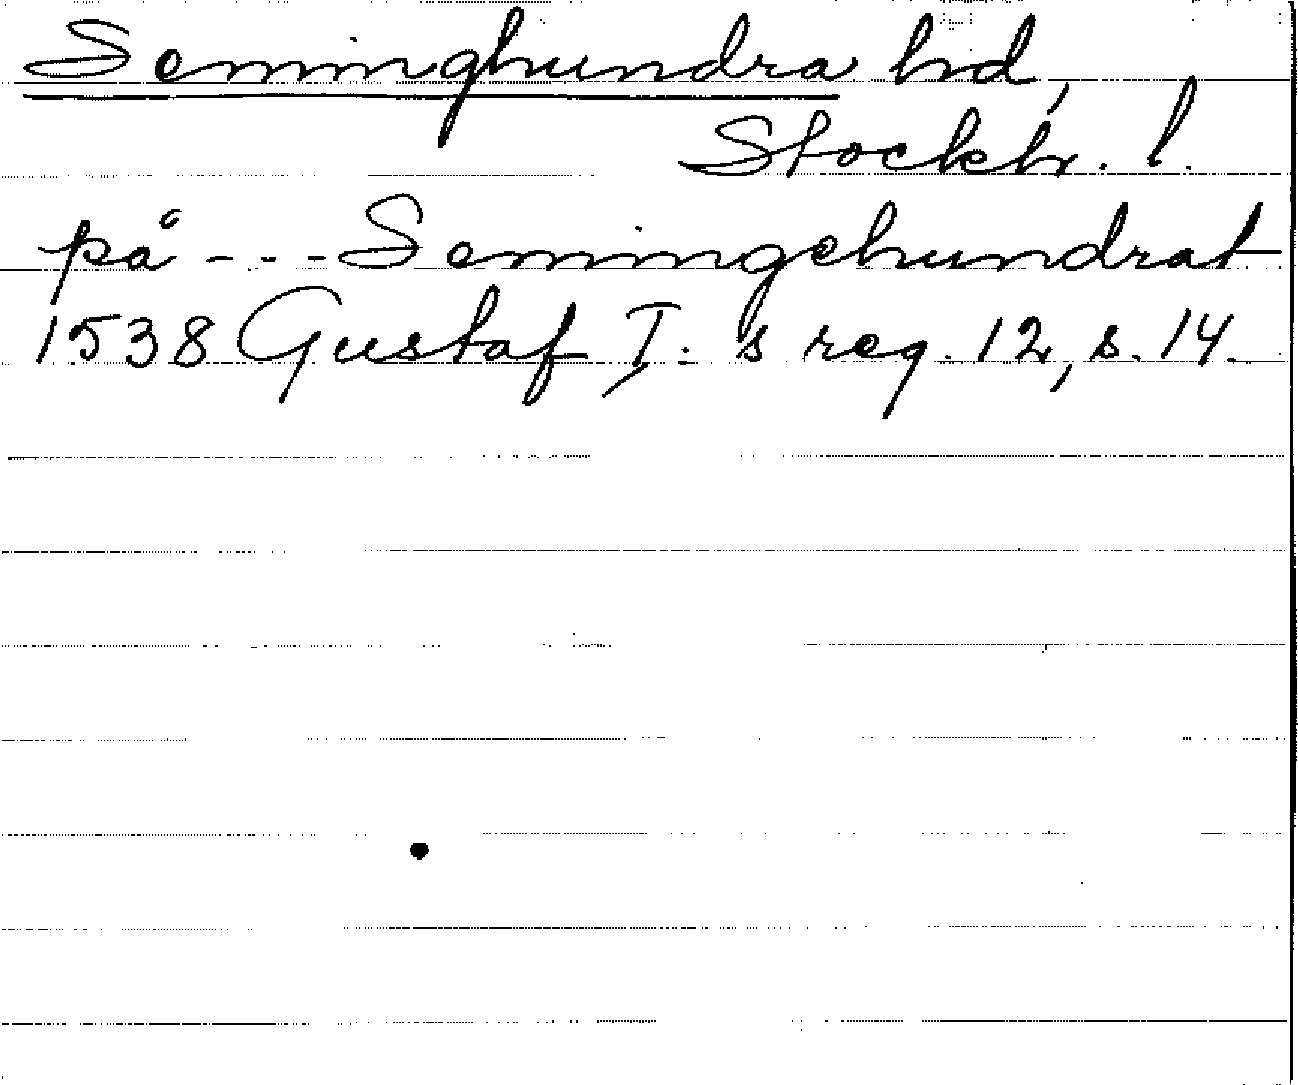 Seminghundra hd,
Stockh. l.
på - - - Semingehundrat
1538 Gustaf I:s reg. 12, s. 14.